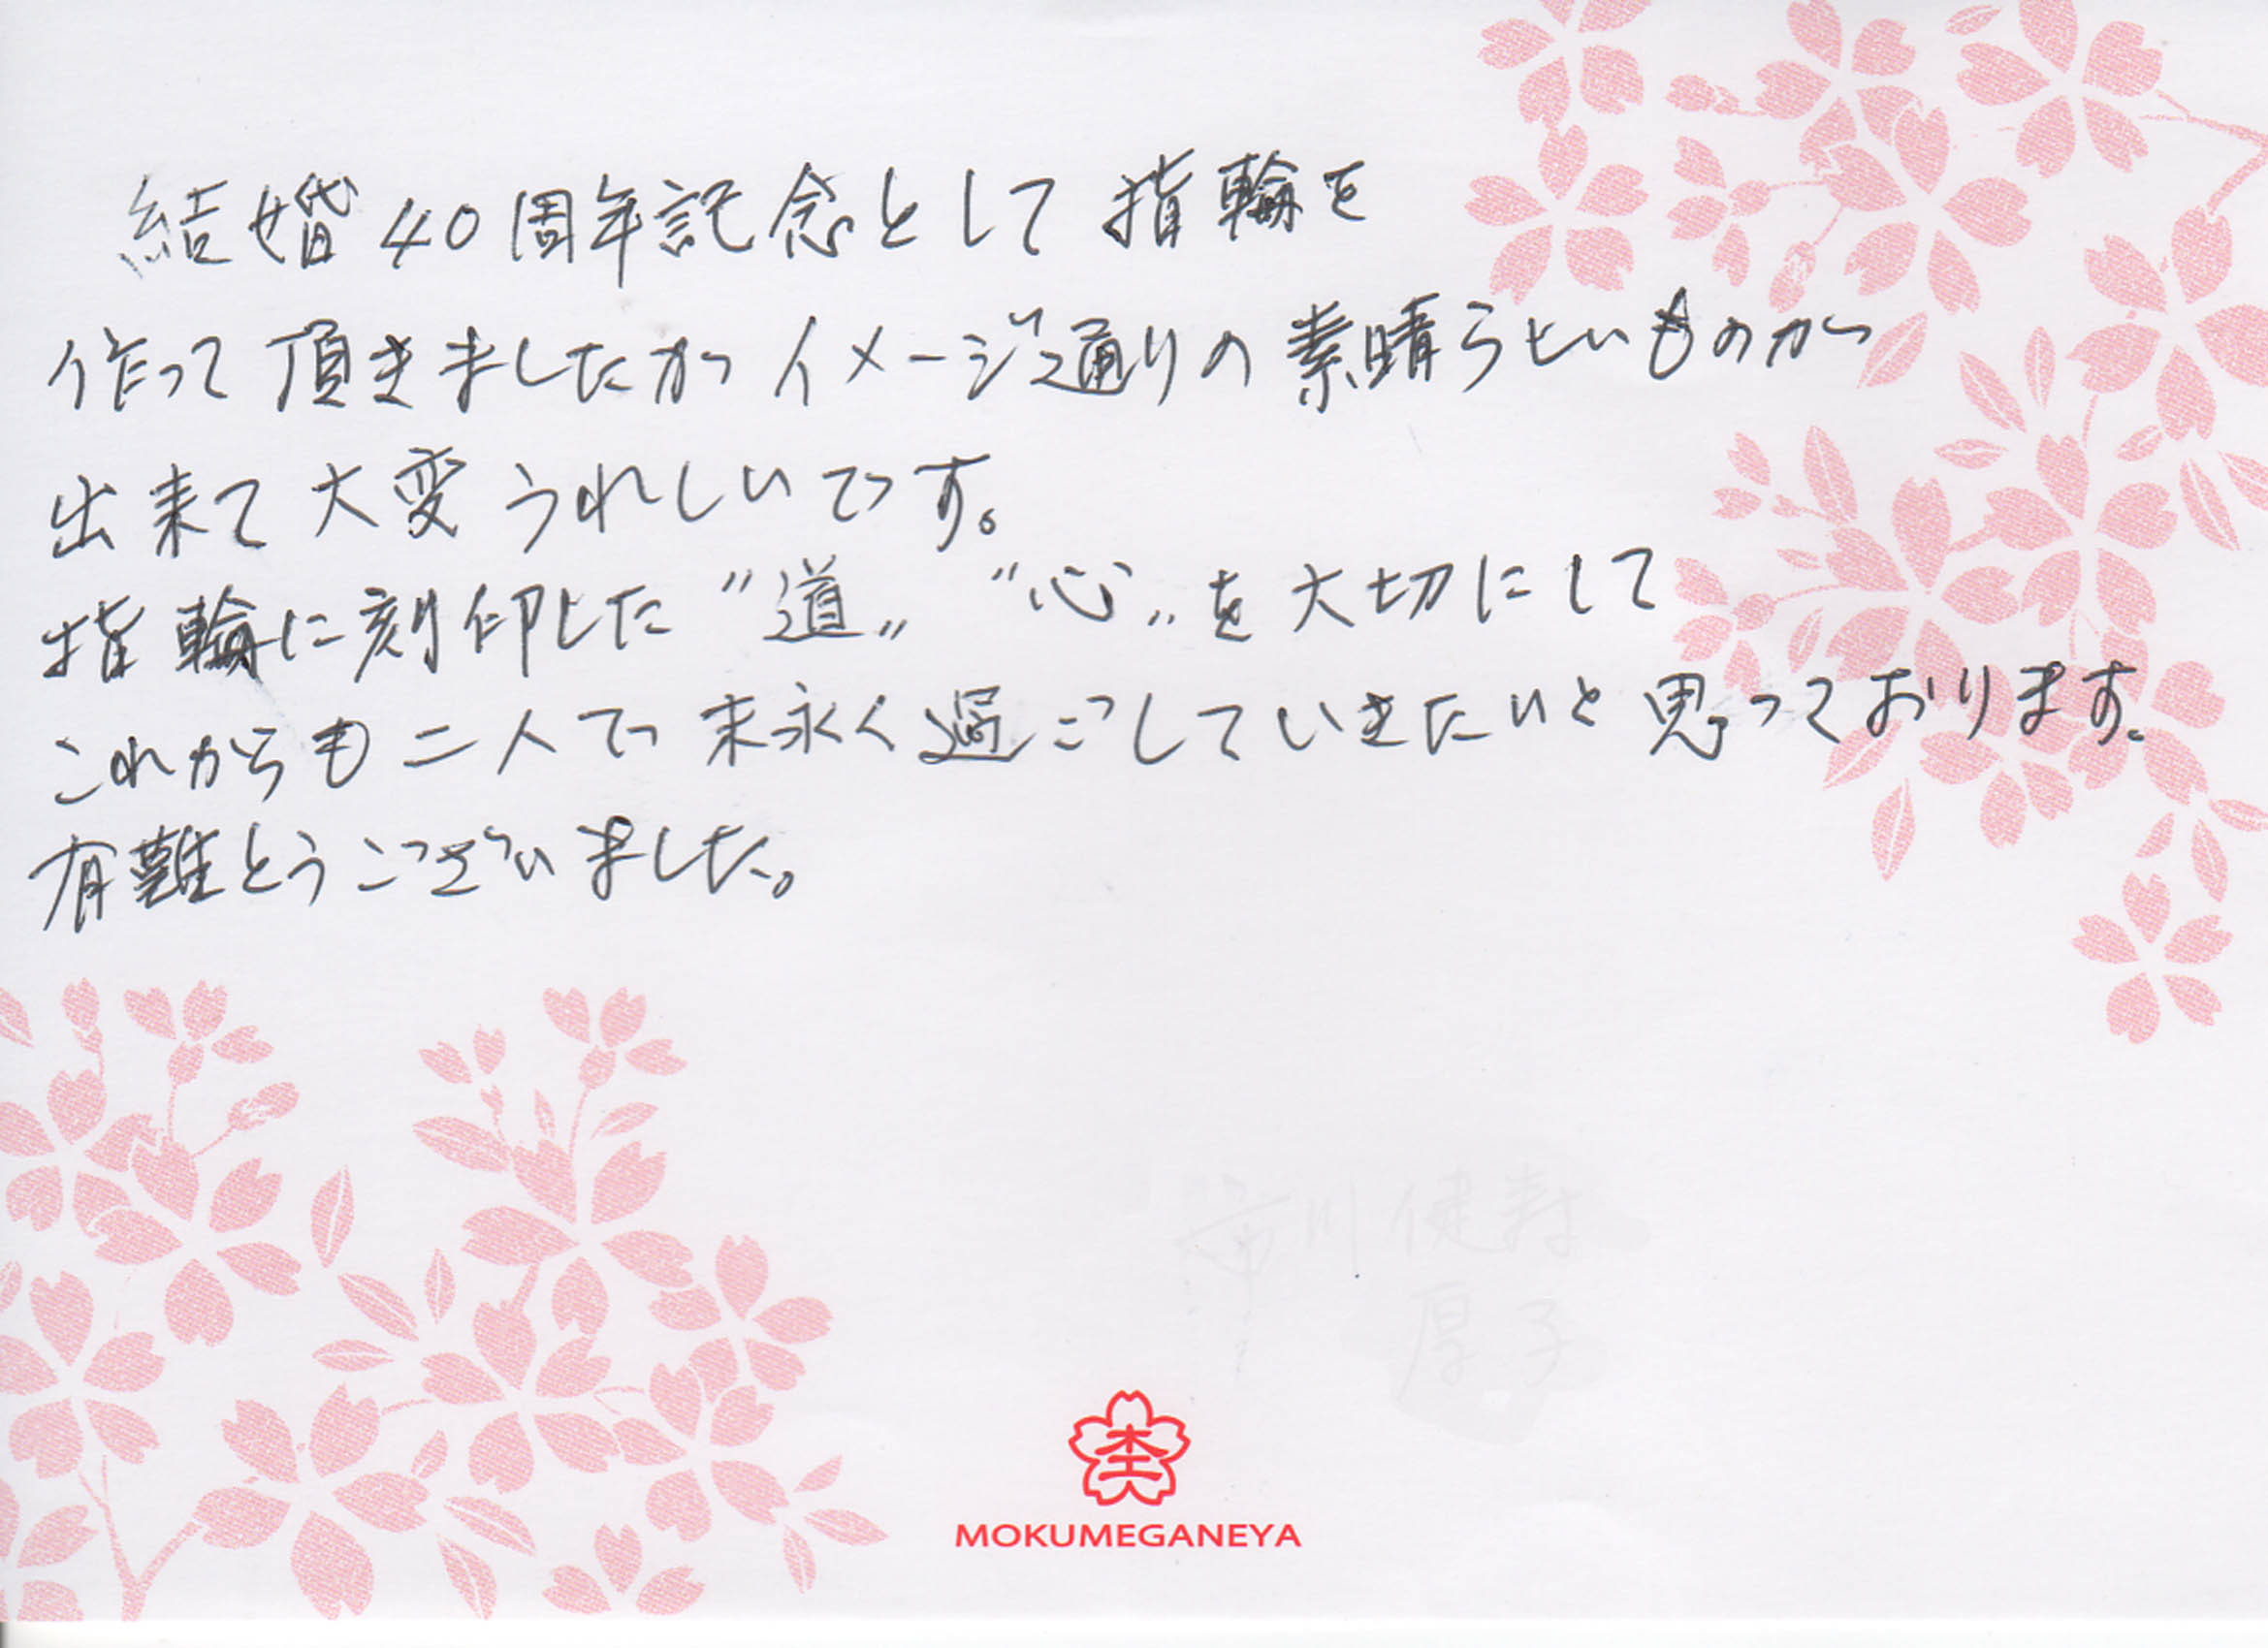 結婚40周年記念として指輪を
作って頂きましたがイメージ通りの素晴らしいものが
出来て大変うれしいです。
指輪に刻印した〝道〟〝心〟を大切にして
これからも二人で末永く過ごしていきたいと思っております。
有難とうございました。
MOKUMEGANEYA